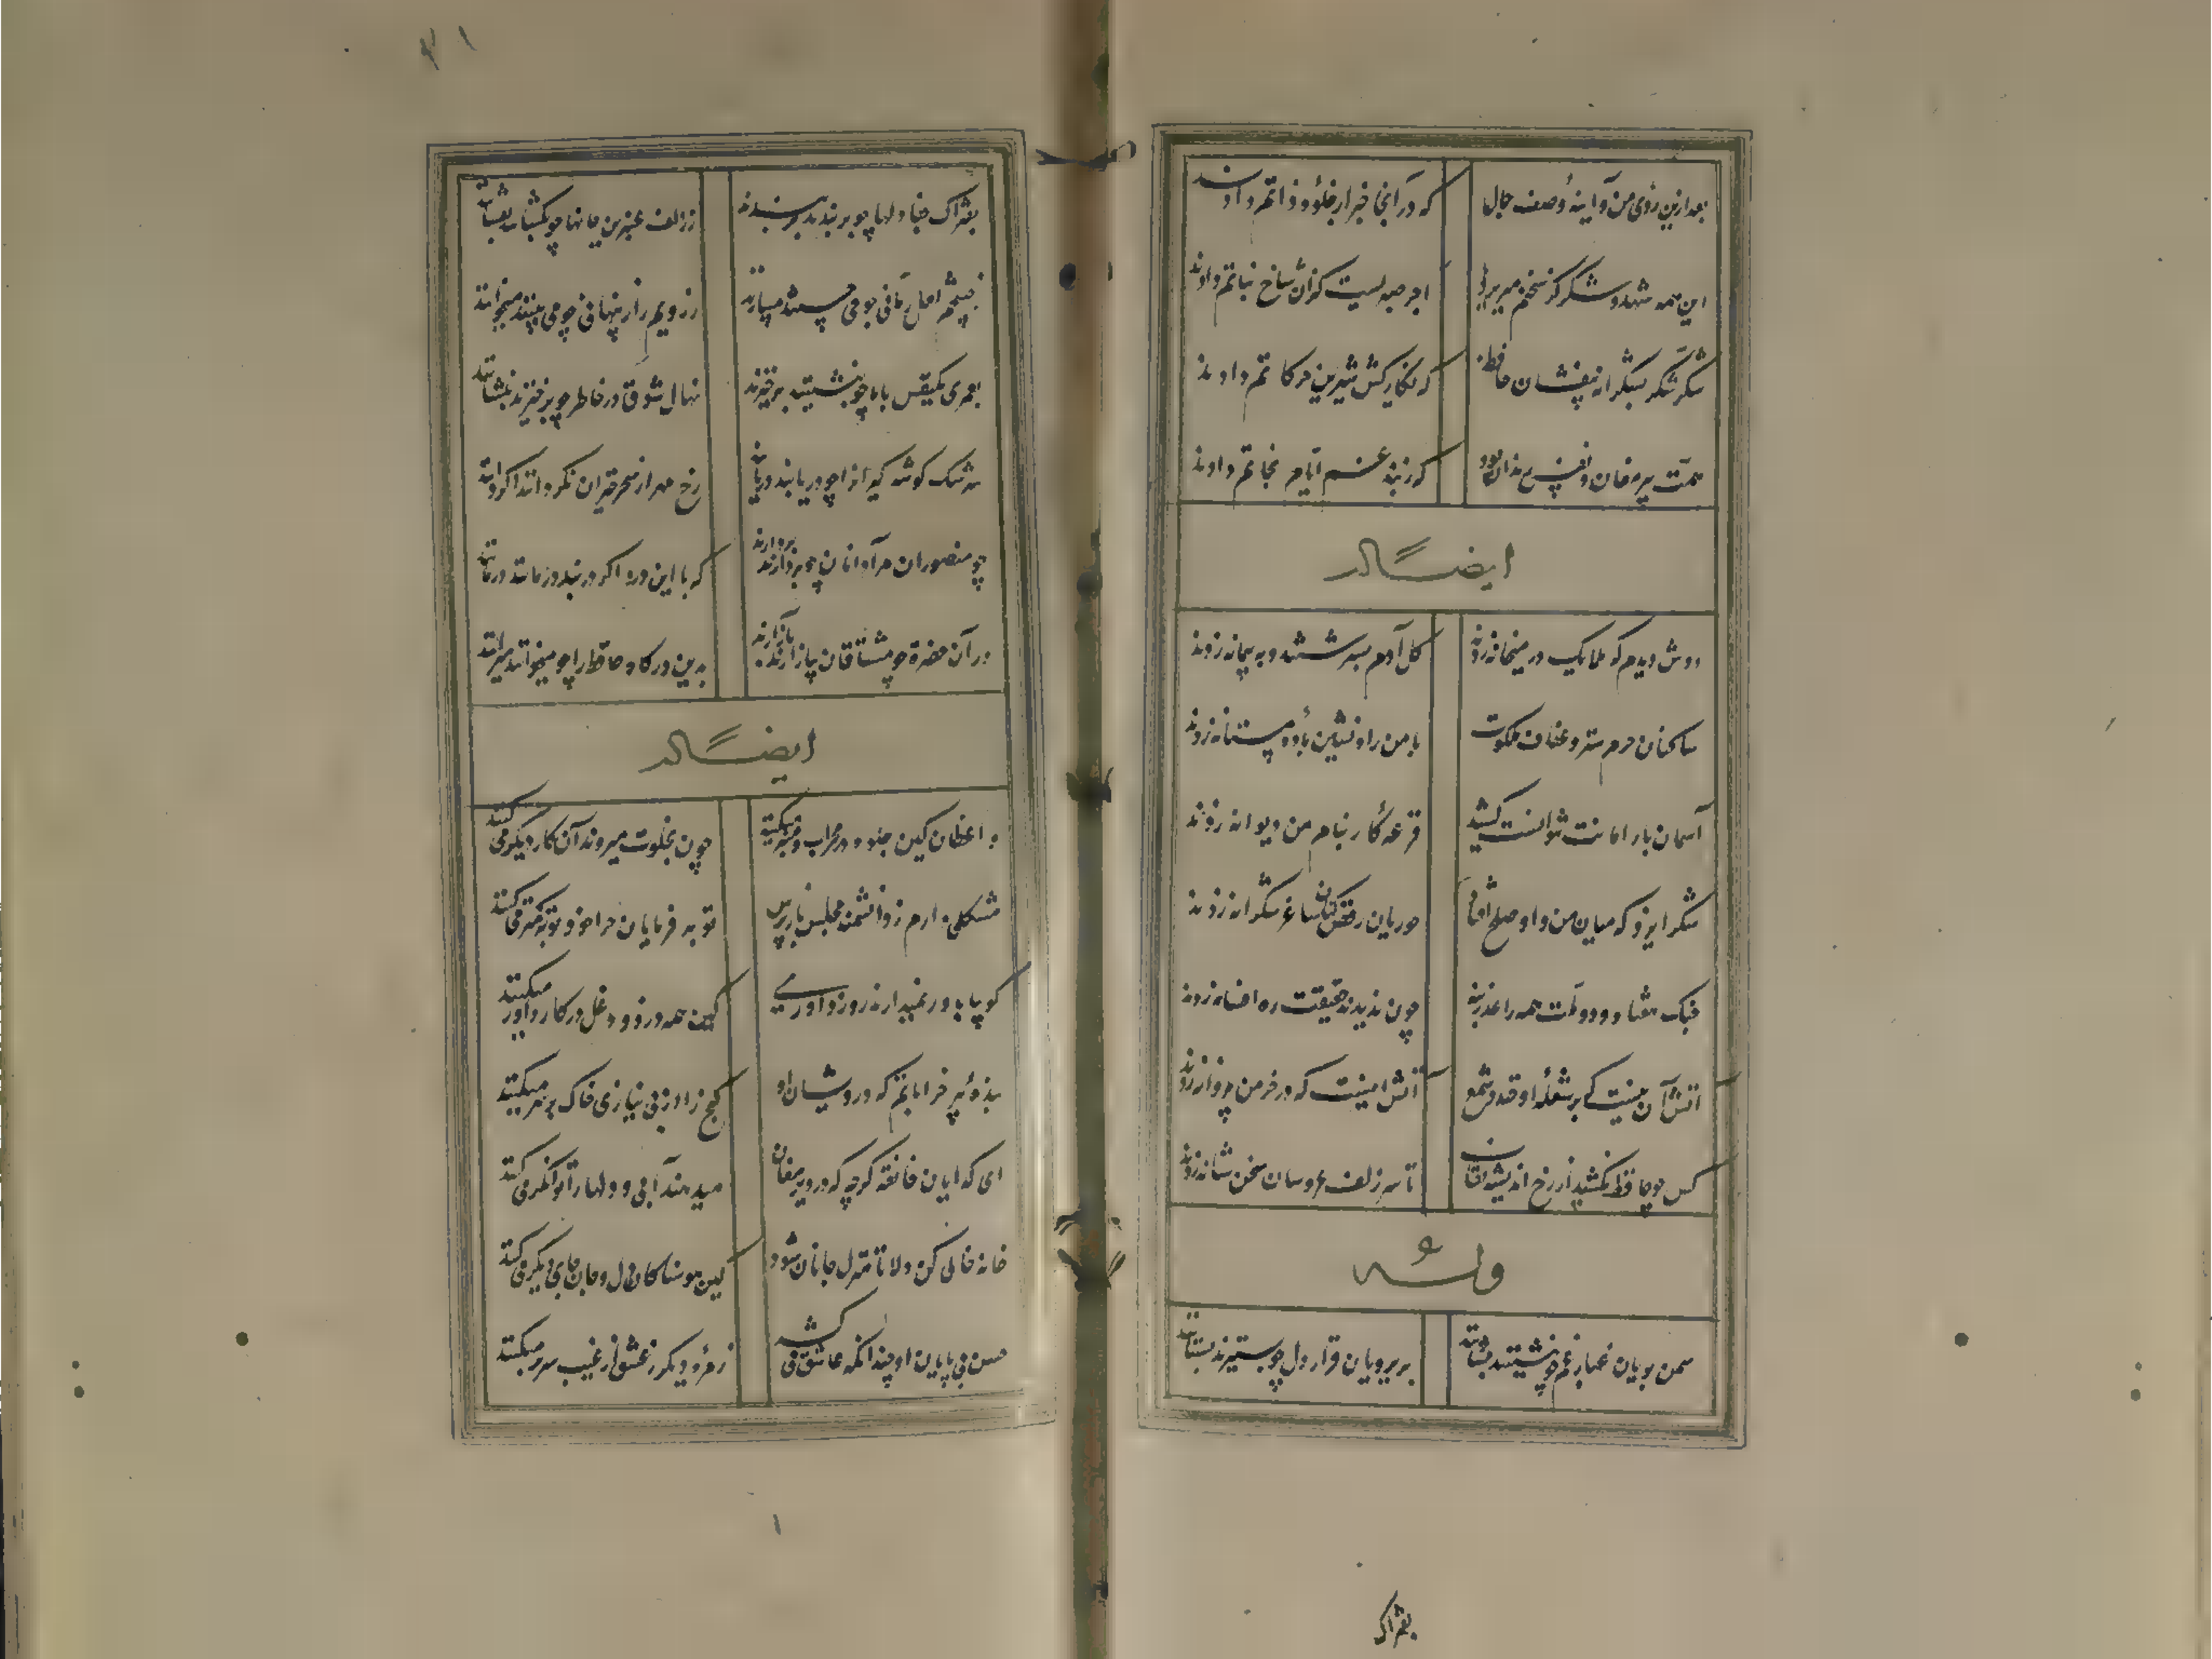 بعد ازین روی من و آینهٔ وصف جمال
که در آنجا خبر از جلوهٔ ذاتم دادند
این همه شهد و شکر کز سخنم میریزد
اجر صبریست کزان شاخ نباتم دادند
شکر شکر بشکرانه بیفشان حافظ
که نگار کش شیرین حرکاتم دادند
همت پیر مغان و نفس رندان بود
که ز بند غم ایام نجاتم دادند
ایضاً له
دوش دیدم که ملایک در میخانه زدند
کل آدم بسرشتند و به پیمانه زدند
ساکنان حرم ستر و عفاف ملکوت
با من راه نشین بادهٔ مستانه زدند
آسمان بار امانت نتوانست کشید
قرعهٔ کار بنام من دیوانه زدند
شکر ایزد که میان من و او صلح افتاد
حوریان رقص کنان ساغر شکرانه زدند
جنک هفتاد و دو ملت همه را عذر بنه
چون ندیدند حقیقت ره افسانه زدند
آتش آن نیست که بر شعلهٔ او خندد شمع
آتش اینست که در خرمن پروانه زدند
کس چو حافظ نکشید از رخ اندیشه نقاب
تا سر زلف عروسان سخن شانه زدند
وله
سمن بویان غبار غم چو بنشینند بنشانند
پریرویان قرار دل چو بستیزند بستانند
بفتراک
بفتراک جفا دلها چو بربندند بربندند
ز زلف عنبرین جانها چو بکشایند بفشانند
ز چشمم لعل رمانی چو می میبارند
ز رویم راز پنهانی چو می بینند میخوانند
بعمری یکنفس با ما چو بنشینند برخیزند
نهال شوق در خاطر چو برخیزند بنشانند
سرشک کوشه کیرانرا چو دریابند در یابند
رخ مهر از سحر خیران نکردانند اکر دانند
چو منصوران مراد آنان چو بردارند بردارند
که با این درد اکر در بند درمانند درمانند
در آن حضرة چو مشتاقان نیاز آرند باز آرند
بدین درکاه حافظ را چو میخوانند میرانند
ایضاً له
واعظان کین جلوه در محراب و منبر میکنند
چون بخلوت میروند آن کار دیکر می کنند
مشکلی دارم ز دانشمند مجلس باز پرس
توبه فرمایان چرا خود توبه کمتر می کنند
کویا باور نمیدارند روز داوری
کین همه زرق و دغل در کار داور میکنند
بندهٔ پیر خراباتم که درویشان او
کنج را از بی نیازی خاک بر سر میکنند
ای کدایان خانقه که در دیر مغان
میدهند آبی و دلها را توانکر می کنند
خانه خالی کن دلا تا منزل جانان شود
کین هوسناکان دل و جان جای دیکر می کنند
حسن بی پایان او چندانکه عاشق می کشد
زمرهٔ دیکر ز عشق از غیب سر بر میکنند